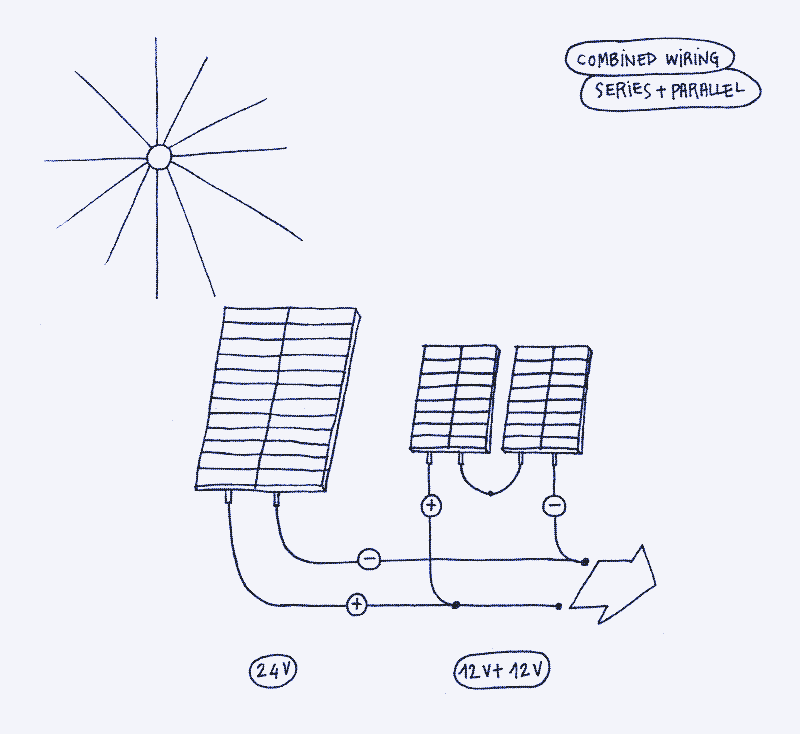 COMBINED WIRING
SERIES + PARALLEL
+
−
−
+
24V
12V + 12V